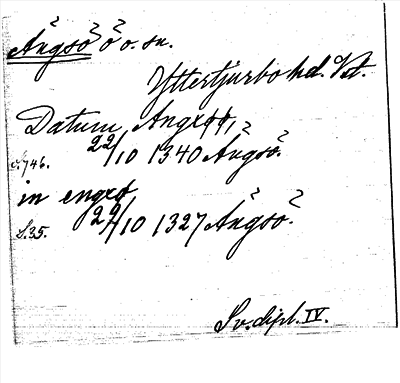 Ängsö ö o. sn.
Yttertjurbo hd. Vstm.
Datum, Angxø,
22/10 1340 Ängsö.
S. 746.
in engxø
29/10 1327 Ängsö.
S. 35.
Sv. dipl. IV.